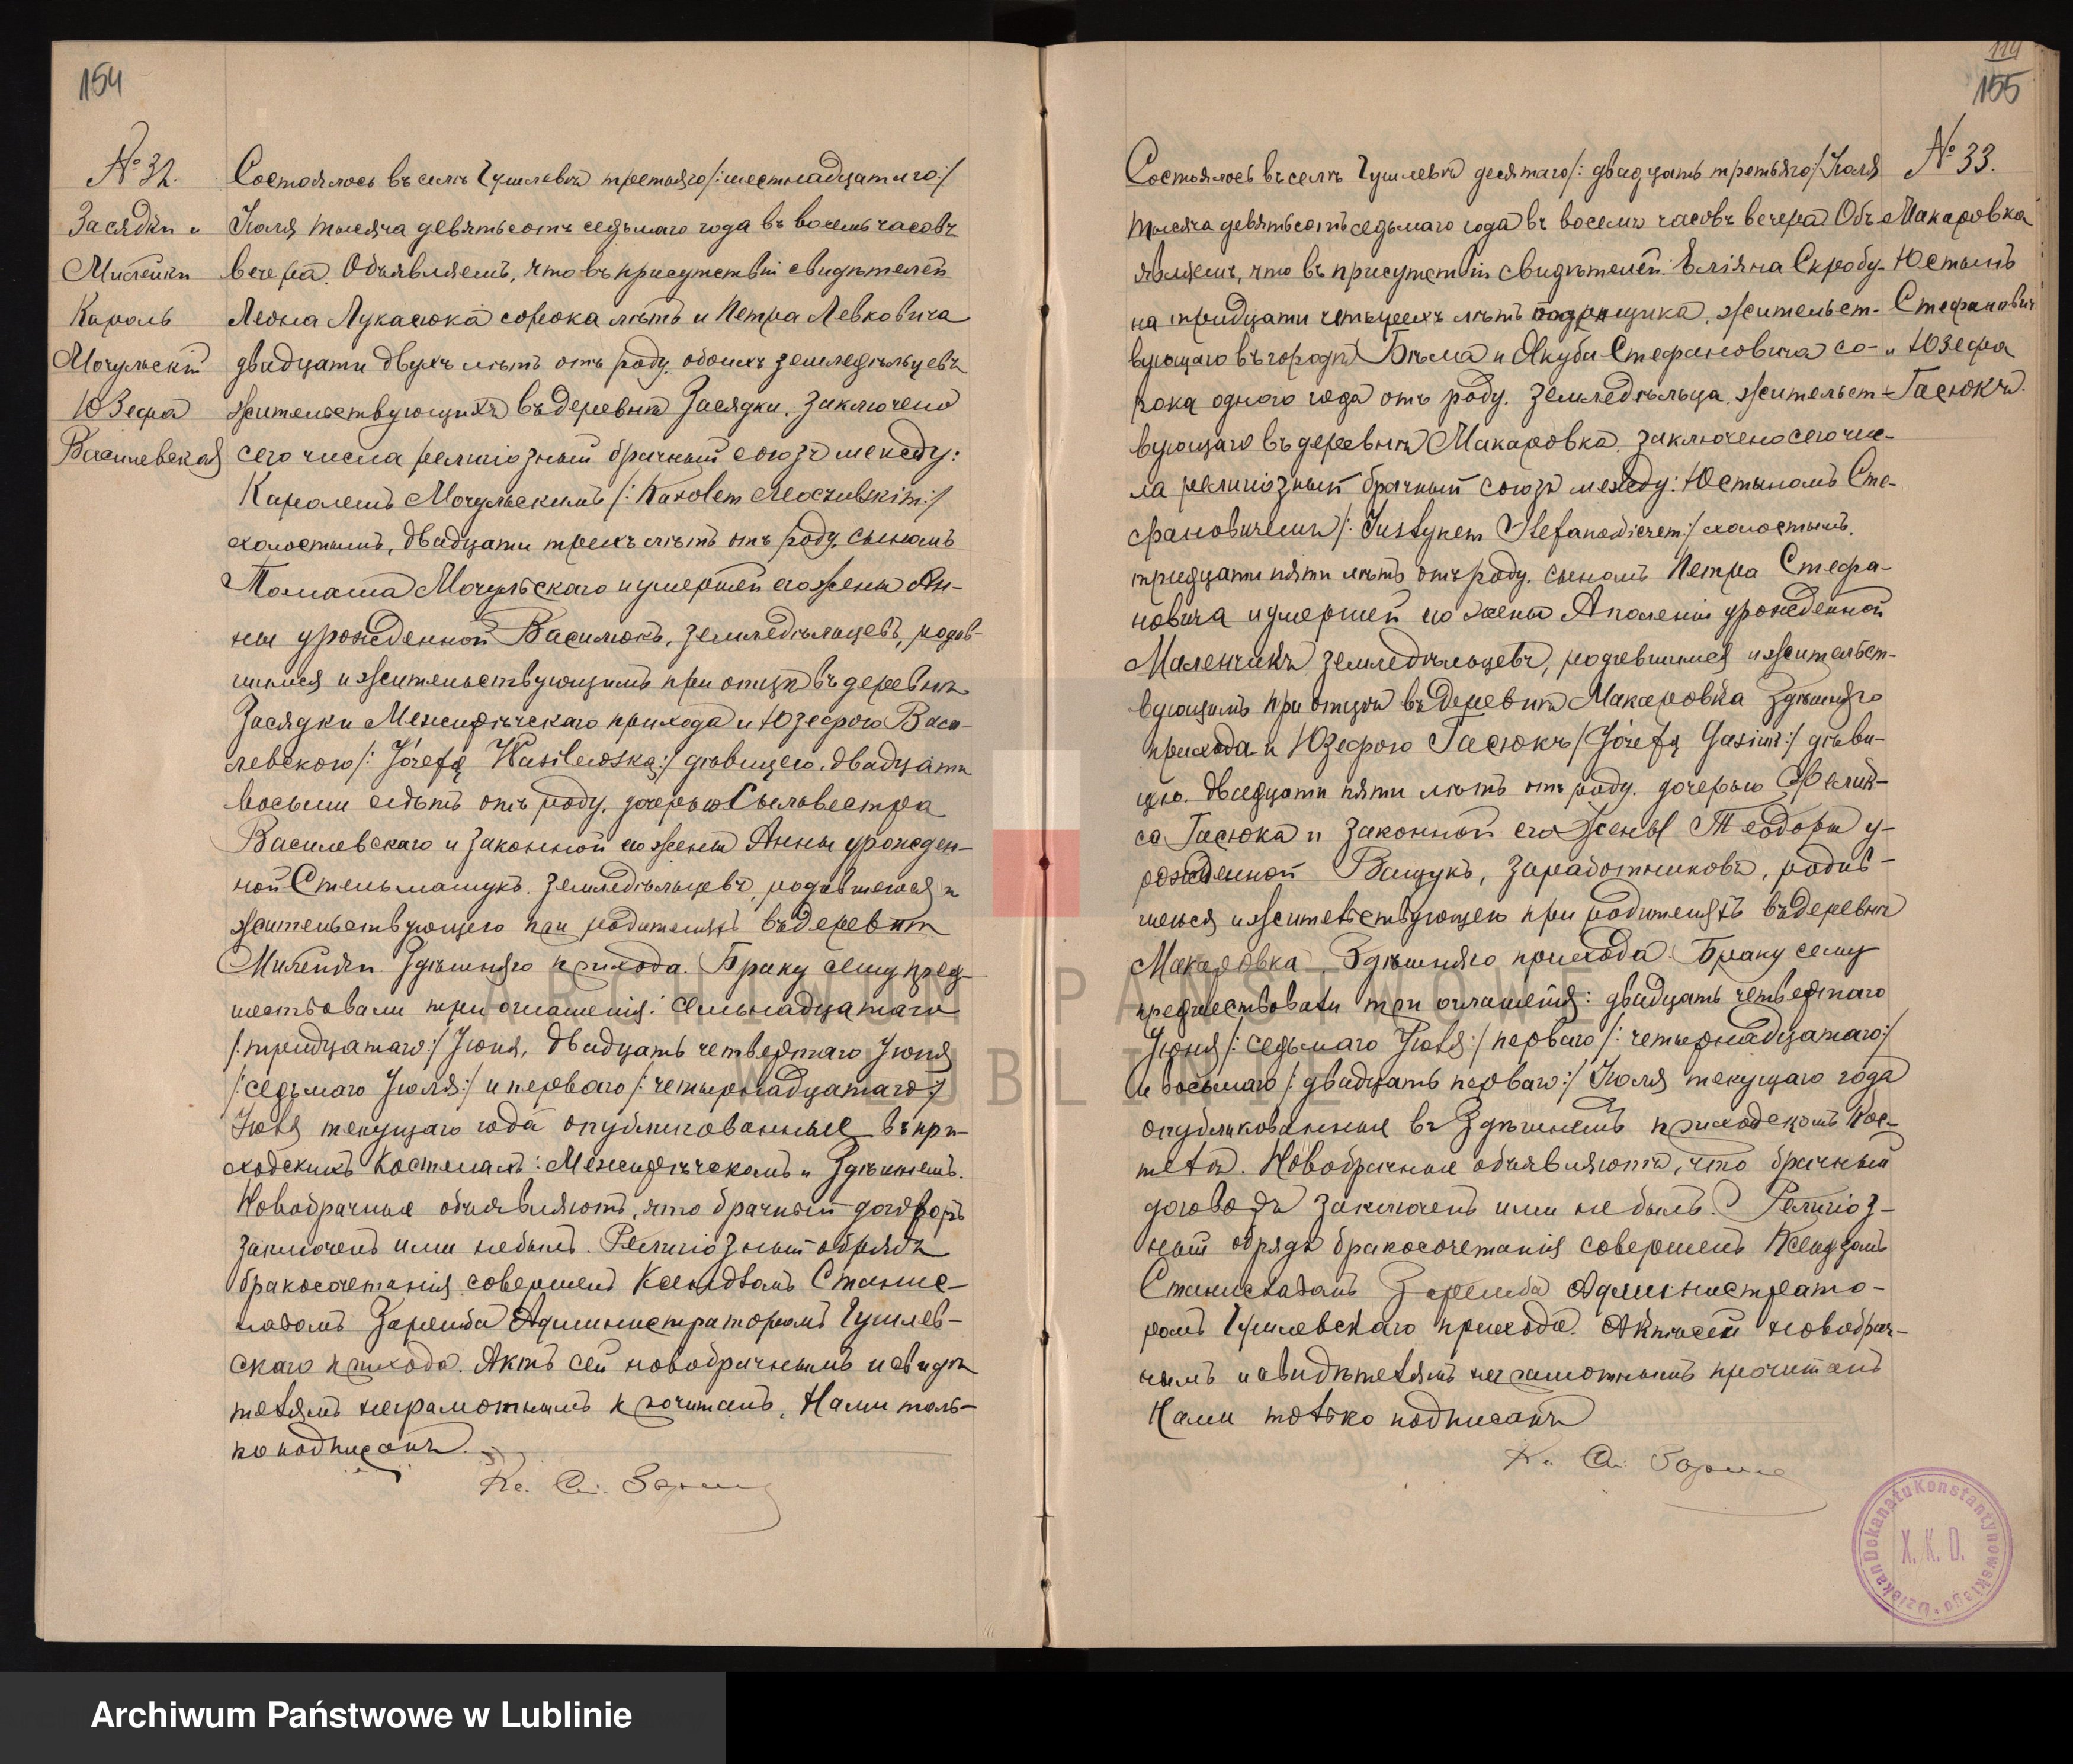 154
№ 32.
Засядки и
Милейки
Кароль
Мочульскій
Юзефа
Василевская
Состоялось въ селѣ Гушлевѣ третьяго /:шестнадцатаго:/
Іюля тысяча девятьсотъ седьмаго года въ восемь часовъ
вечера. Объявляемъ, что въ присутствіи свидѣтелей
Леона Лукасюка сорока лѣтъ и Петра Левковича
двадцати двухъ лѣтъ отъ роду, обоихъ земледѣльцевъ
жительствующихъ въ деревнѣ Засядки, заключено
сего числа религіозный брачный союзъ между:
Каролемъ Мочульскимъ /: Karolem Moczulskim:/
холостымъ, двадцати трехъ лѣтъ отъ роду, сыномъ
Томаша Мочульскаго и умершей его жены Ан-
ны урожденной Василюкъ, земледѣльцевъ, родив-
шимся и жительствующимъ при отцѣ въ деревнѣ
Засядки Межирѣчскаго прихода и Юзефою Васи-
левскою /: Józefą Wasilewską:/ дѣвицею, двадцати
восьми лѣтъ отъ роду, дочерью Сыльвестра
Василевскаго и законной его жены Анны урожден-
ной Стельмашукъ, земледѣльцевъ, родившеюся и
жительствующею при родителяхъ въ деревнѣ
Милейки Здѣшняго прихода. Браку сему пред-
шествовали три оглашенія: семьнадцатаго
/:тридцатаго:/ Іюня, двадцать четвертаго Іюня
/:седьмаго Іюля:/ и перваго /:четырнадцатаго:/
Іюля текущаго года опубликованные въ при-
ходскихъ Костелахъ: Межирѣчскомъ и Здѣшнемъ.
Новобрачные объявляютъ, что брачный договоръ
заключенъ ими небылъ. Религіозный обрядъ
бракосочетанія совершенъ Ксендзомъ Станис-
лавомъ Заремба Администраторомъ Гушлев-
скаго прихода. Актъ сей новобрачнымъ и свидѣ
телямъ неграмотнымъ прочитанъ, Нами толь-
ко подписанъ.
Кс. Ст. Заремба
114
155
№ 33.
Макаровка
Юстынъ
Стефановичъ
и Юзефа
Гасюкъ.
Состоялось въ селѣ Гушлевѣ десятаго /: двадцать третьяго:/ Іюля
тысяча девятьсотъ седьмаго года въ восемь часовъ вечера Объ-
являемъ, что въ присутствіи свидѣтелей: Скробу-
на тридцати четырехъ лѣтъ жительст-
вующаго въ городѣ Бѣла и Якуба Стефановича со-
рока одного года отъ роду, земледѣльца, жительст-
вующаго въ деревнѣ Макаровка, заключено сего чис-
ла религіозный брачный союзъ между: Юстыномъ Сте-
фановичемъ /: Justynem Stefanowiczem:/ холостымъ,
тридцати пяти лѣтъ отъ роду, сыномъ Петра Стефа-
новича и умершей его жены Аполеніи урожденной
Маленчукъ земледѣльцевъ, родившимся и жительст-
вующимъ при отцѣ въ деревнѣ Макаровка Здѣшняго
прихода и Юзефою Гасюкъ /: Józefą Gasiuk:/ дѣви-
цею, двадцати пяти лѣтъ отъ роду, дочерью Феликъ-
са Гасюка и законной его жены Теодоры у-
рожденной Ващукъ, заработниковъ, родив-
шеюся и жительствующею при родителяхъ въ деревнѣ
Макаровка, Здѣшняго прихода. Браку сему
предшествовали три оглашенія: двадцать четвертаго
Іюня /: седьмаго Іюля:/ перваго /: четырнадцатаго:/
и восьмаго /: двадцать перваго:/ Іюля текущаго года
опубликованные въ Здѣшнемъ приходскомъ Кос-
телѣ. Новобрачные объявляютъ, что брачный
договоръ заключенъ ими не былъ. Религіоз-
ный обрядъ бракосочетанія совершенъ Ксендзомъ
Станиславомъ Заремба Администрато-
ромъ Гушлевскаго прихода. Актъ сей новобрач-
нымъ и свидѣтелямъ неграмотнымъ прочитанъ
Нами только подписанъ
Кс. Ст. Заремба
Dziekan Dekanatu Konstantynowskiego
X. K. D.
ARCHIWUM PAŃSTWOWE
W LUBLINIE
Archiwum Państwowe w Lublinie